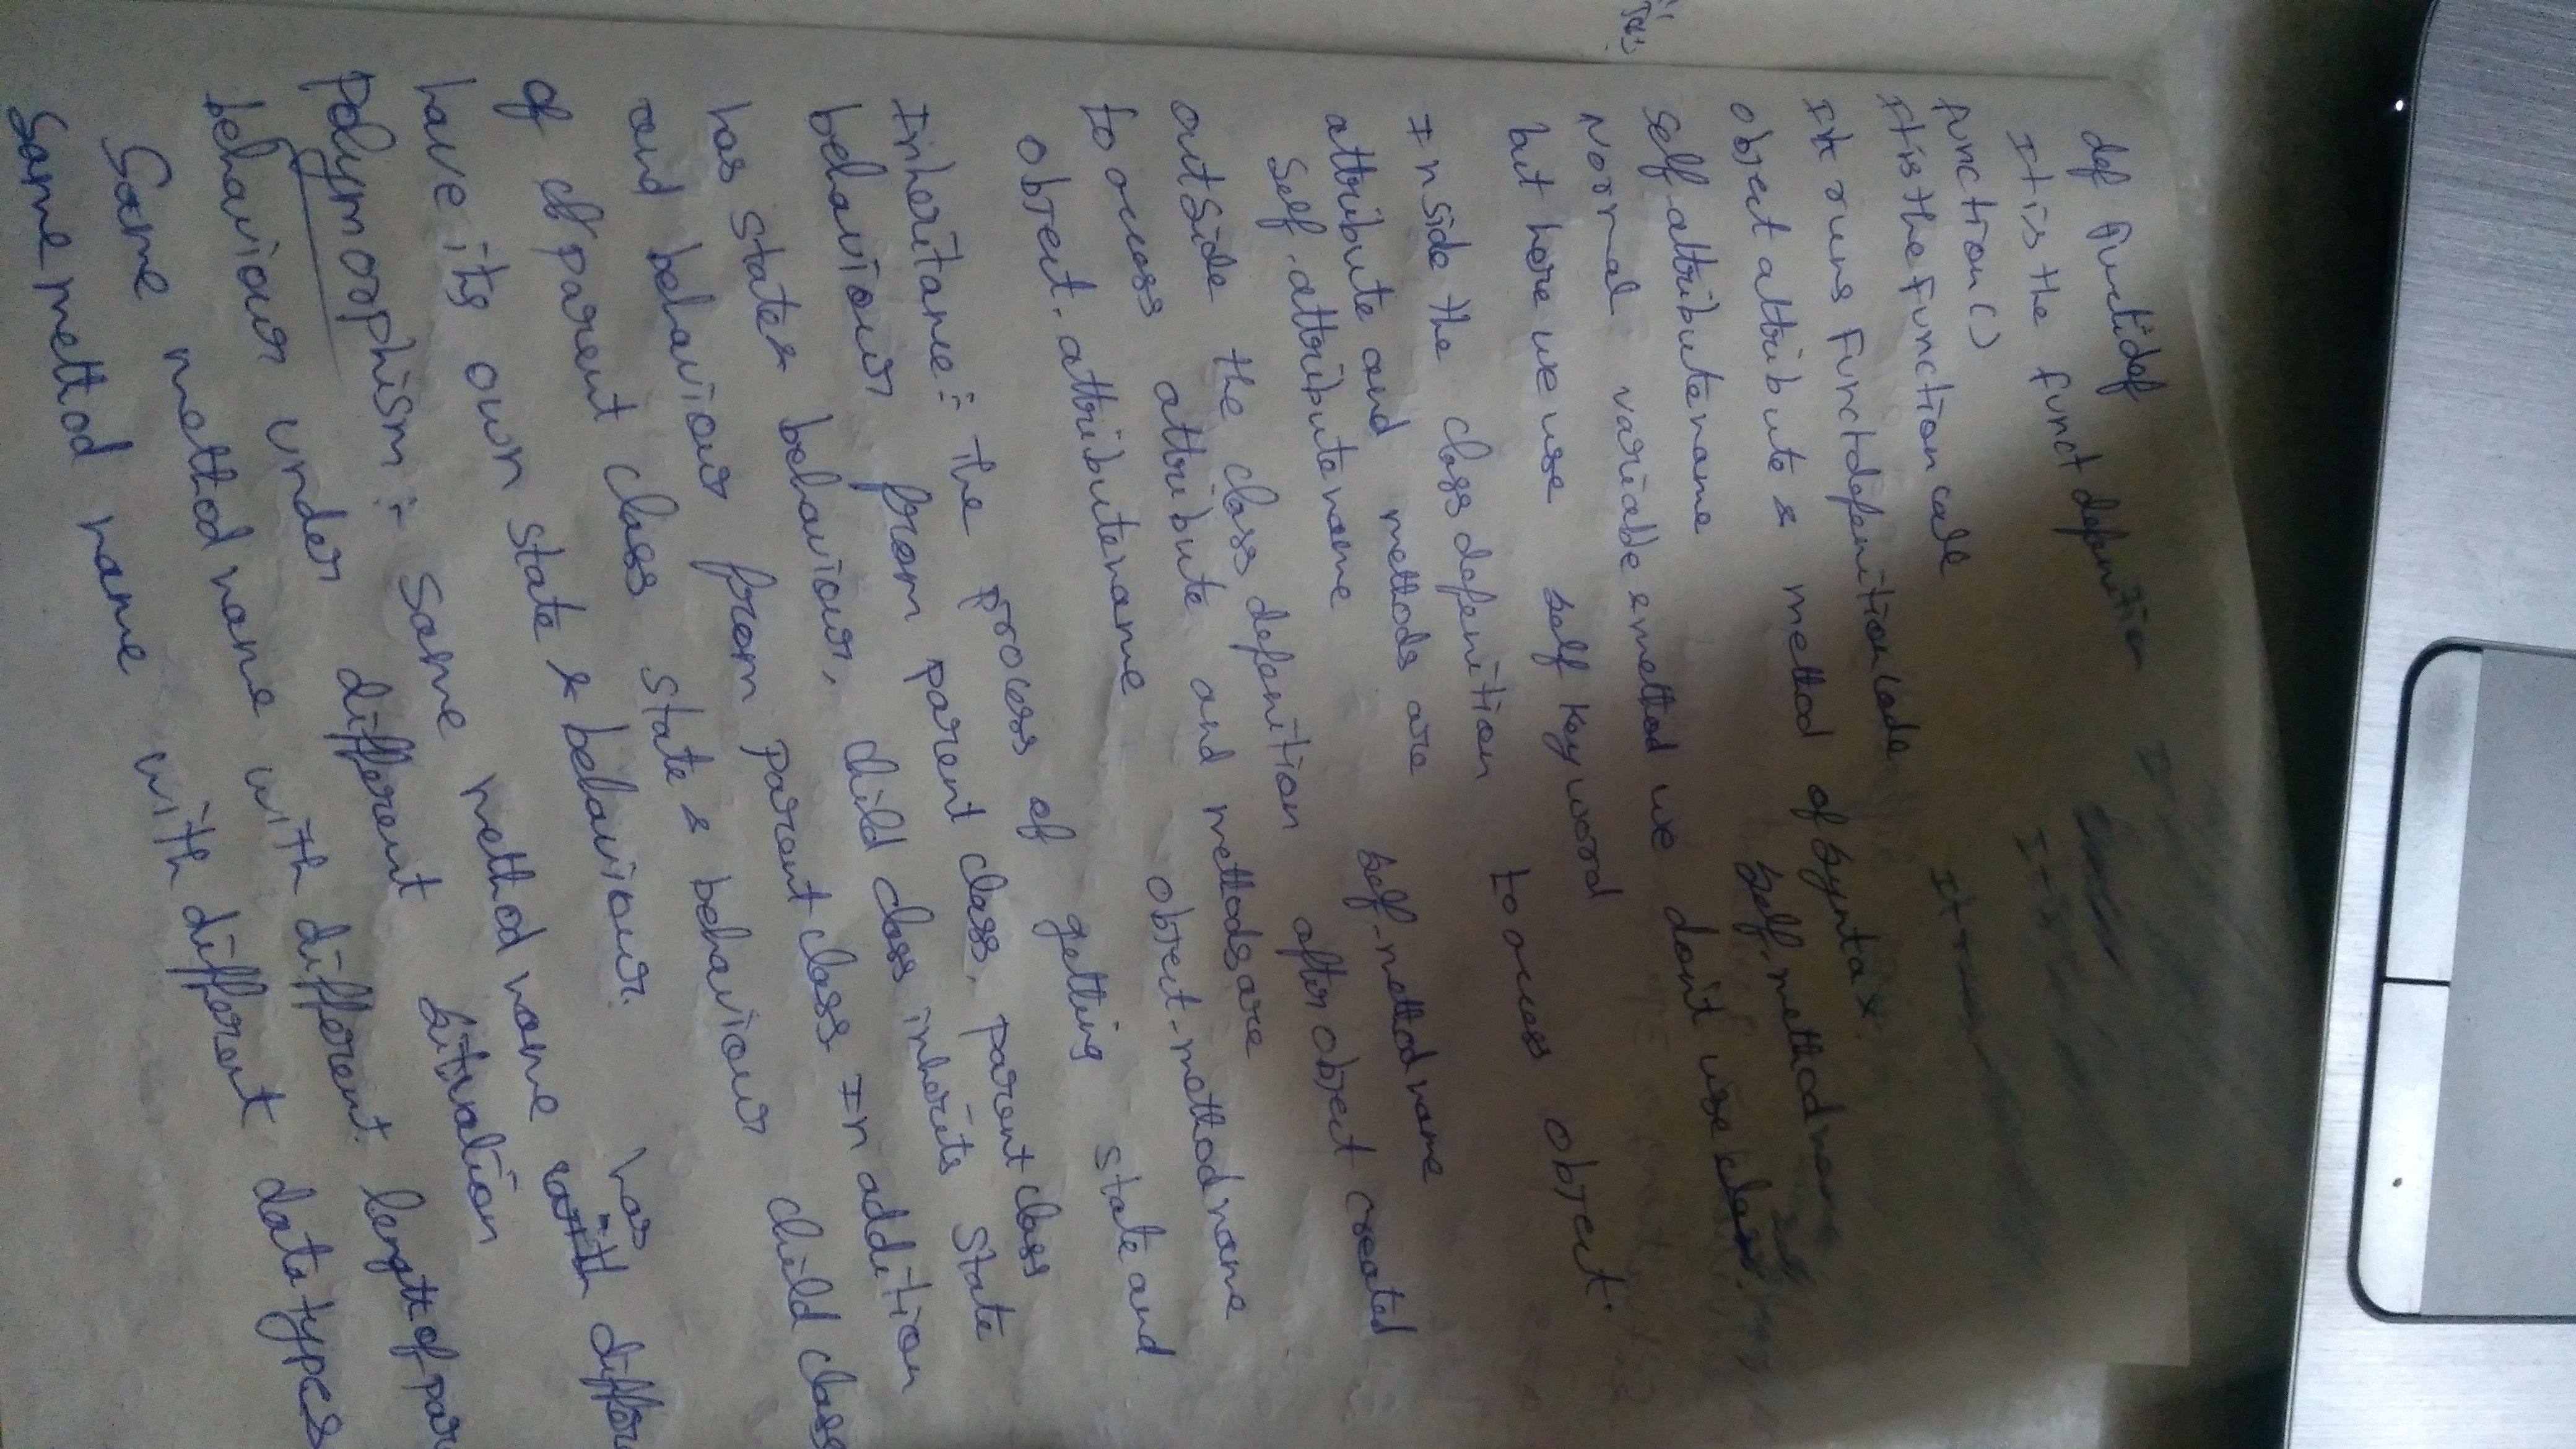 def Functidef
It is the funct defenition
function()
It is the function call
It runs Functdefenition code
object attribute & method of syntax
self.attributename self.methodname
Normal variable & method we don't use class.
but here we use self keyword
Inside the class defenition to access object.
attribute and methods are
self.attributename self.methodname
outside the class defenition after object created
to access attribute and methods are
object.attributename object.methodname
Inheritance:- The process of getting state and
behaviour from parent class. parent class
has state & behaviour. child class inherits state
and behaviour from parent class In addition
of parent class state & behaviour child class
have its own state & behaviour.
polymorphism:- Same method name has with
behaviour under different situation
Same method name with different length of
Same method name with different data types